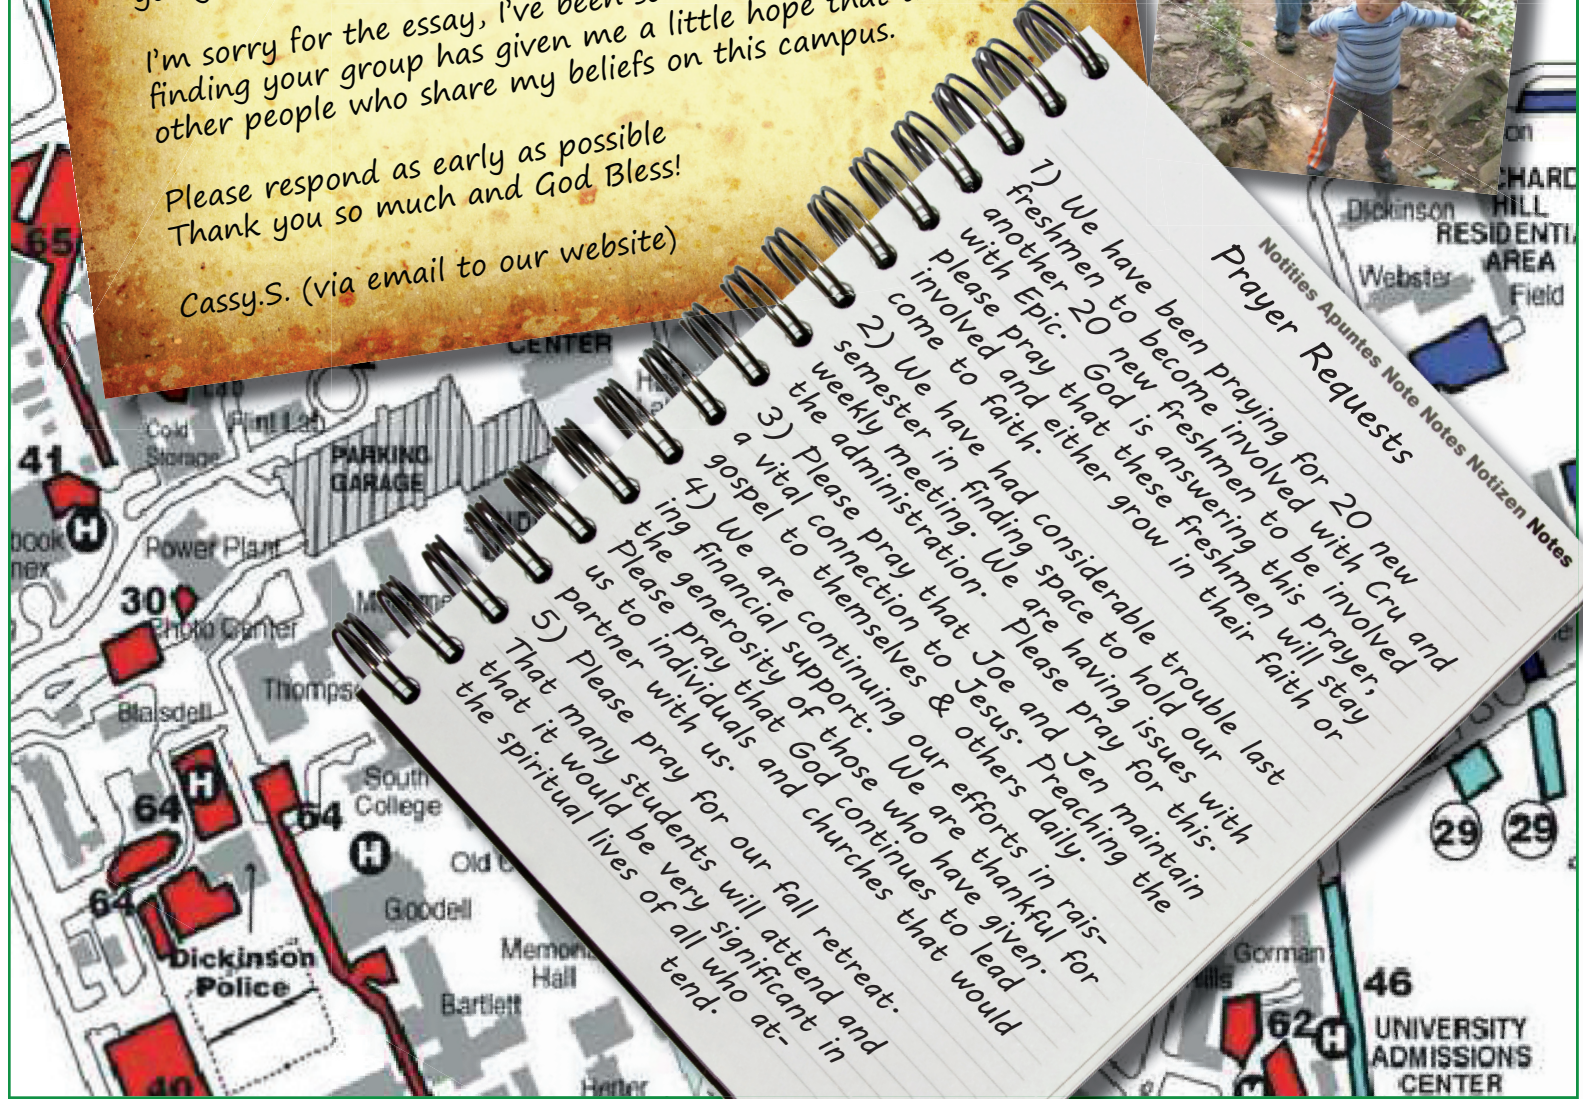 I'm sorry for the essay, I've been
finding your group has given me a little hope that
other people who share my beliefs on this campus.
Please respond as early as possible
Thank you so much and God Bless!
Cassy.S. (via email to our website)
Notities Apuntes Note Notes Notizen Notes
Prayer Requests
1) We have been praying for 20 new
freshmen to become involved with Cru and
another 20 new freshmen to be involved
with Epic. God is answering this prayer,
please pray that these freshmen will stay
involved and either grow in their faith or
come to faith.
2) We have had considerable trouble last
semester in finding space to hold our
weekly meeting. We are having issues with
the administration. Please pray for this.
3) Please pray that Joe and Jen maintain
a vital connection to Jesus. Preaching the
gospel to themselves & others daily.
4) We are continuing our efforts in rais-
ing financial support. We are thankful for
the generosity of those who have given.
Please pray that God continues to lead
us to individuals and churches that would
partner with us.
5) Please pray for our fall retreat.
That many students will attend and
that it would be very significant in
the spiritual lives of all who at-
tend.
65
CENTER
Lab
Flint Lab
Cold
Storage
PARKING
GARAGE
41
H
Power Plant
309
Photo Center
Blaisdell
64
H
64
64
South
College
H
Old
Goodell
Dickinson
Police
Memorial
Hall
Bartlett
40
Herter
Dickinson
HILL
RESIDENTIAL
AREA
Webster
Field
29
29
Gorman
46
62
H
UNIVERSITY
ADMISSIONS
CENTER